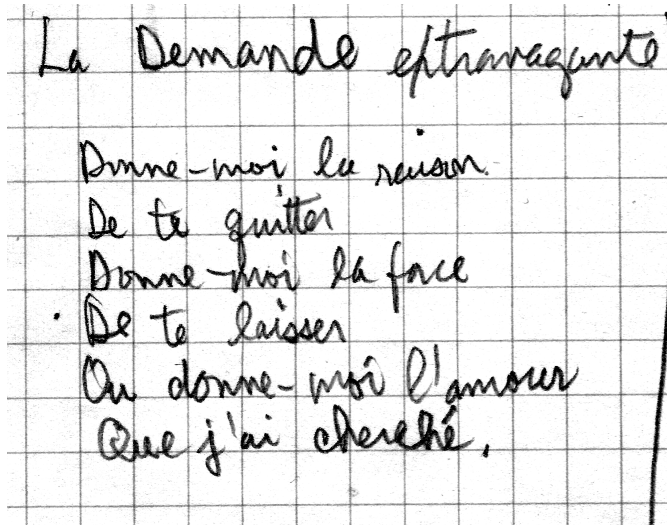 La Demande extravagante
Donne-moi la raison
De te quitter
Donne-moi la force
De te laisser
Ou donne-moi l'amour
Que j'ai cherché.